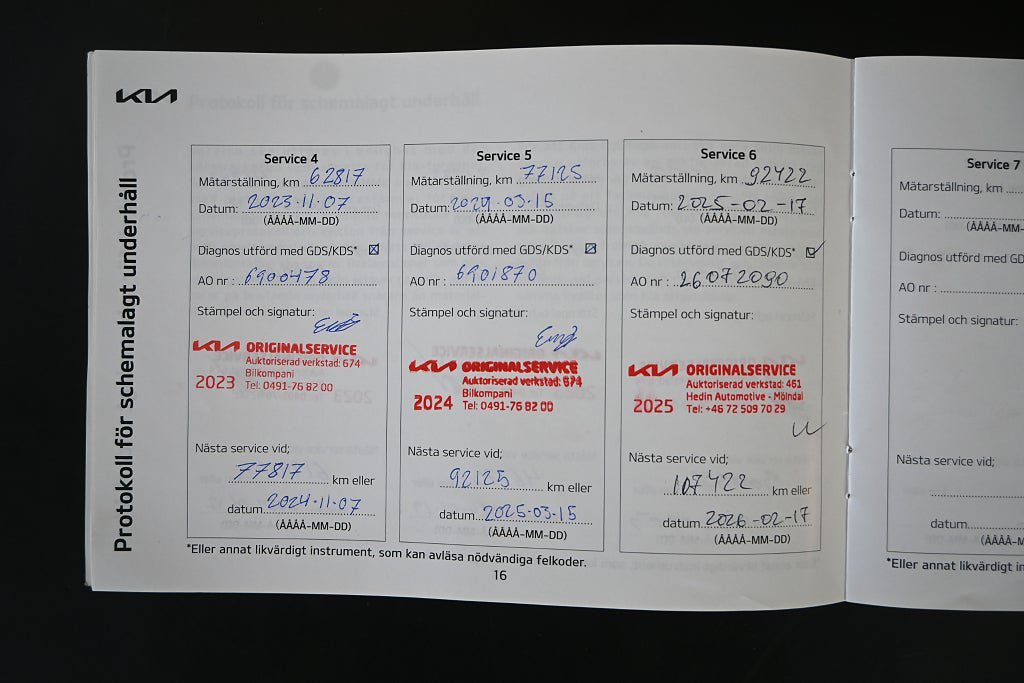 KIA
Protokoll för schemalagt underhåll
Service 4
Mätarställning, km 62817
Datum: 2023-11-07
(ÅÅÅÅ-MM-DD)
Diagnos utförd med GDS/KDS*
AO nr : 6900478
Stämpel och signatur:
KIA ORIGINALSERVICE
Auktoriserad verkstad: 674
Bilkompani
2023 Tel: 0491-76 82 00
Nästa service vid;
77817 km eller
datum 2024-11-07
(ÅÅÅÅ-MM-DD)
Service 5
Mätarställning, km 77125
Datum: 2024-03-15
(ÅÅÅÅ-MM-DD)
Diagnos utförd med GDS/KDS*
AO nr : 6901870
Stämpel och signatur:
KIA ORIGINALSERVICE
Auktoriserad verkstad: 674
Bilkompani
2024 Tel: 0491-76 82 00
Nästa service vid;
92125 km eller
datum 2025-03-15
(ÅÅÅÅ-MM-DD)
Service 6
Mätarställning, km 92422
Datum: 2025-02-17
(ÅÅÅÅ-MM-DD)
Diagnos utförd med GDS/KDS*
AO nr : 26072090
Stämpel och signatur:
KIA ORIGINALSERVICE
Auktoriserad verkstad: 461
Hedin Automotive - Mölndal
2025 Tel: +46 72 509 70 29
Nästa service vid;
107422 km eller
datum 2026-02-17
(ÅÅÅÅ-MM-DD)
*Eller annat likvärdigt instrument, som kan avläsa nödvändiga felkoder.
16
Service 7
Mätarställning, km
Datum:
(ÅÅÅÅ-MM-
Diagnos utförd med GDS
AO nr :
Stämpel och signatur:
Nästa service vid;
datum
(ÅÅÅÅ-M
*Eller annat likvärdigt in